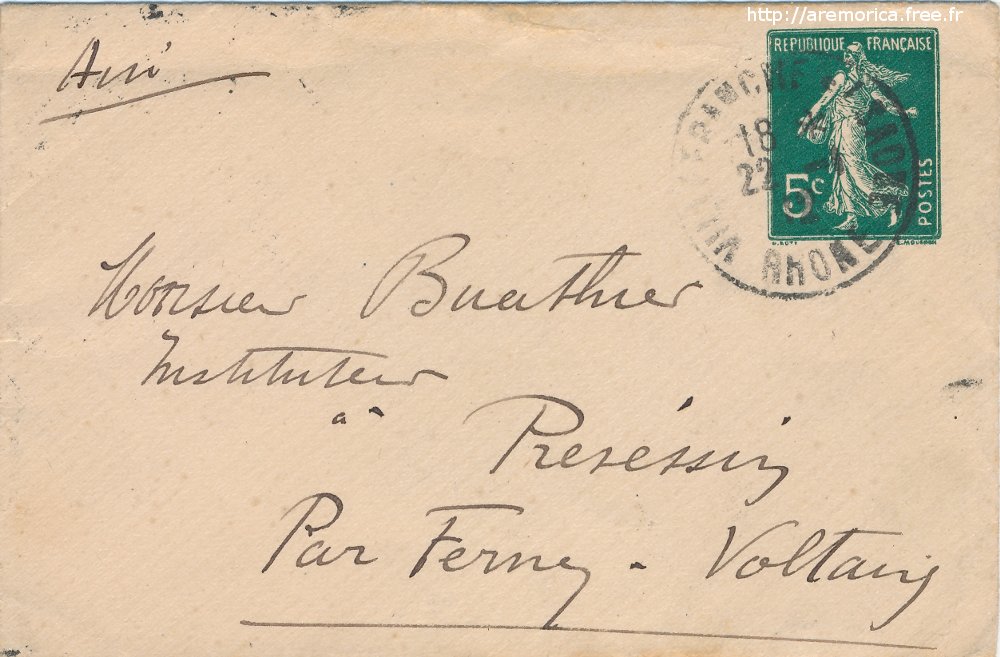 http://aremorica.free.fr
Ain
REPUBLIQUE FRANÇAISE
5c
POSTES
VILLEFRANCHE S/ SAONE
18
22
RHONE
Monsieur Buathier
Instituteur
à
Prevessin
Par Ferney - Voltaire